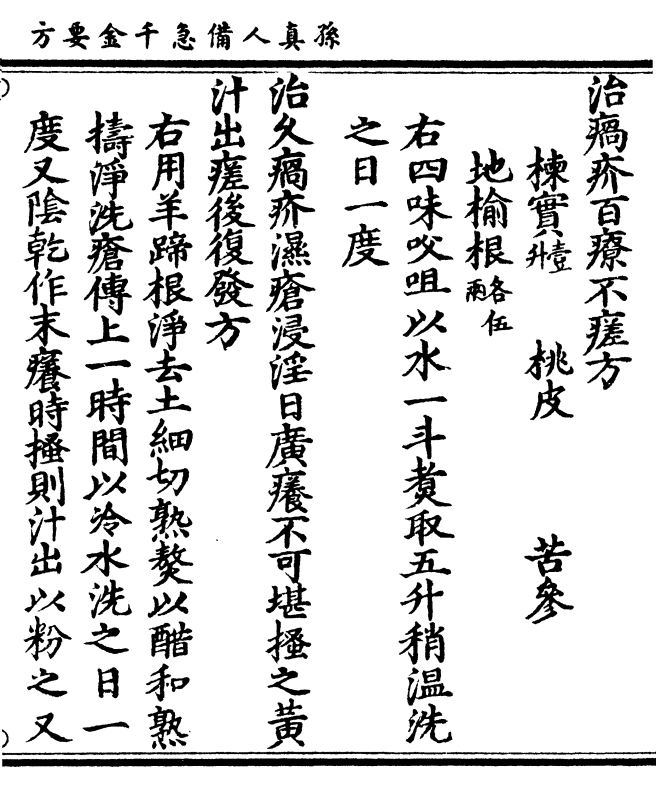 孫真人備急千金要方
治瘑疥百療不瘥方
楝實壹升 桃皮 苦參
地榆根各伍兩
右四味㕮咀以水一斗煑取五升稍温洗
之日一度
治久瘑疥濕瘡浸淫日廣癢不可堪搔之黃
汁出瘥後復發方
右用羊蹄根淨去土細切熟熬以醋和熟
擣淨洗瘡傅上一時間以冷水洗之日一
度又陰乾作末癢時搔則汁出以粉之又